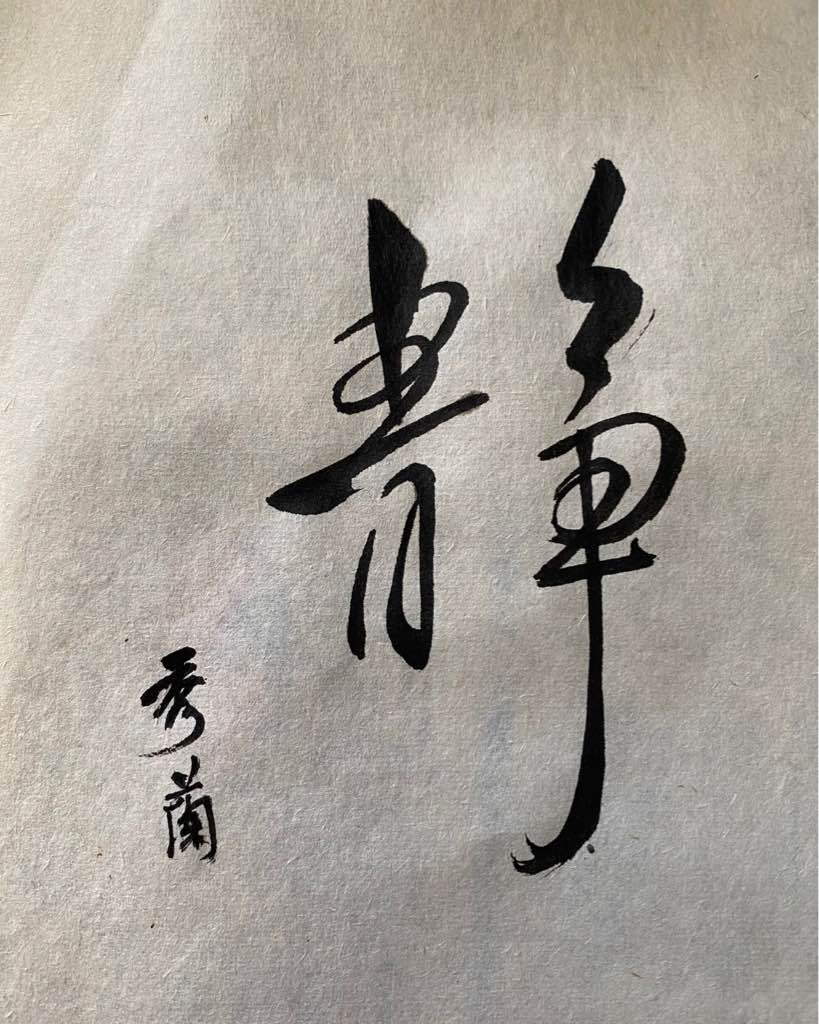 靜
秀蘭